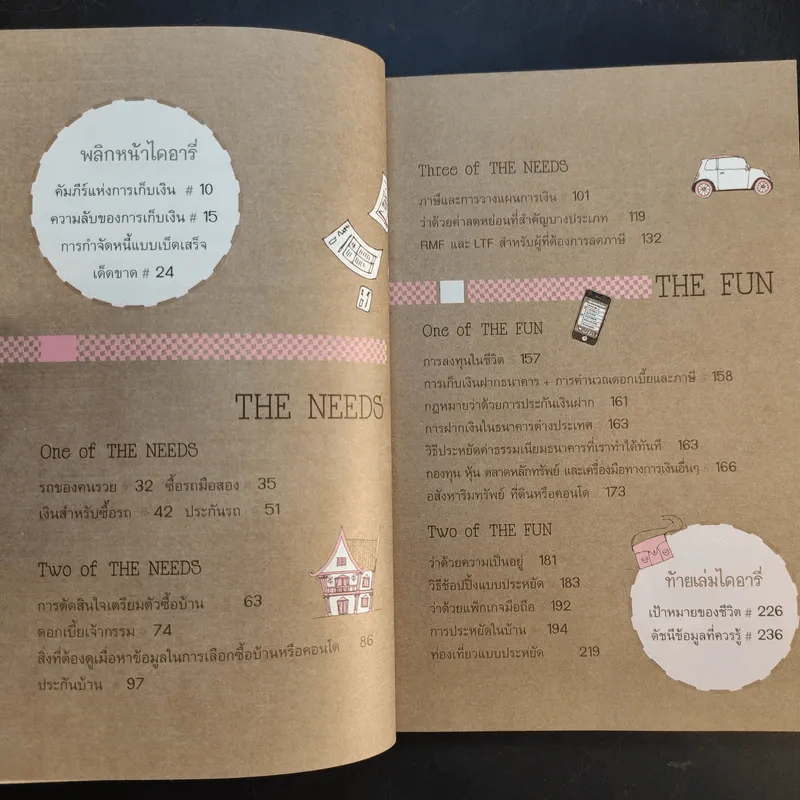 พลิกหน้าไดอารี่
คัมภีร์แห่งการเก็บเงิน # 10
ความลับของการเก็บเงิน # 15
การกำจัดหนี้แบบเบ็ดเสร็จ
เด็ดขาด # 24
THE NEEDS
One of THE NEEDS
รถของคนรวย 32 ซื้อรถมือสอง 35
เงินสำหรับซื้อรถ 42 ประกันรถ 51
Two of THE NEEDS
การตัดสินใจเตรียมตัวซื้อบ้าน 63
ดอกเบี้ยเจ้ากรรม 74
สิ่งที่ต้องดูเมื่อหาข้อมูลในการเลือกซื้อบ้านหรือคอนโด 86
ประกันบ้าน 97
Three of THE NEEDS
ภาษีและการวางแผนการเงิน 101
ว่าด้วยค่าลดหย่อนที่สำคัญบางประเภท 119
RMF และ LTF สำหรับผู้ที่ต้องการลดภาษี 132
THE FUN
One of THE FUN
การลงทุนในชีวิต 157
การเก็บเงินฝากธนาคาร + การคำนวณดอกเบี้ยและภาษี 158
กฎหมายว่าด้วยการประกันเงินฝาก 161
การฝากเงินในธนาคารต่างประเทศ 163
วิธีประหยัดค่าธรรมเนียมธนาคารที่เราทำได้ทันที 163
กองทุน หุ้น ตลาดหลักทรัพย์ และเครื่องมือทางการเงินอื่นๆ 166
อสังหาริมทรัพย์ ที่ดินหรือคอนโด 173
Two of THE FUN
ว่าด้วยความเป็นอยู่ 181
วิธีช้อปปิ้งแบบประหยัด 183
ว่าด้วยแพ็กเกจมือถือ 192
การประหยัดในบ้าน 194
ท่องเที่ยวแบบประหยัด 219
ท้ายเล่มไดอารี่
เป้าหมายของชีวิต # 226
ดัชนีข้อมูลที่ควรรู้ # 236